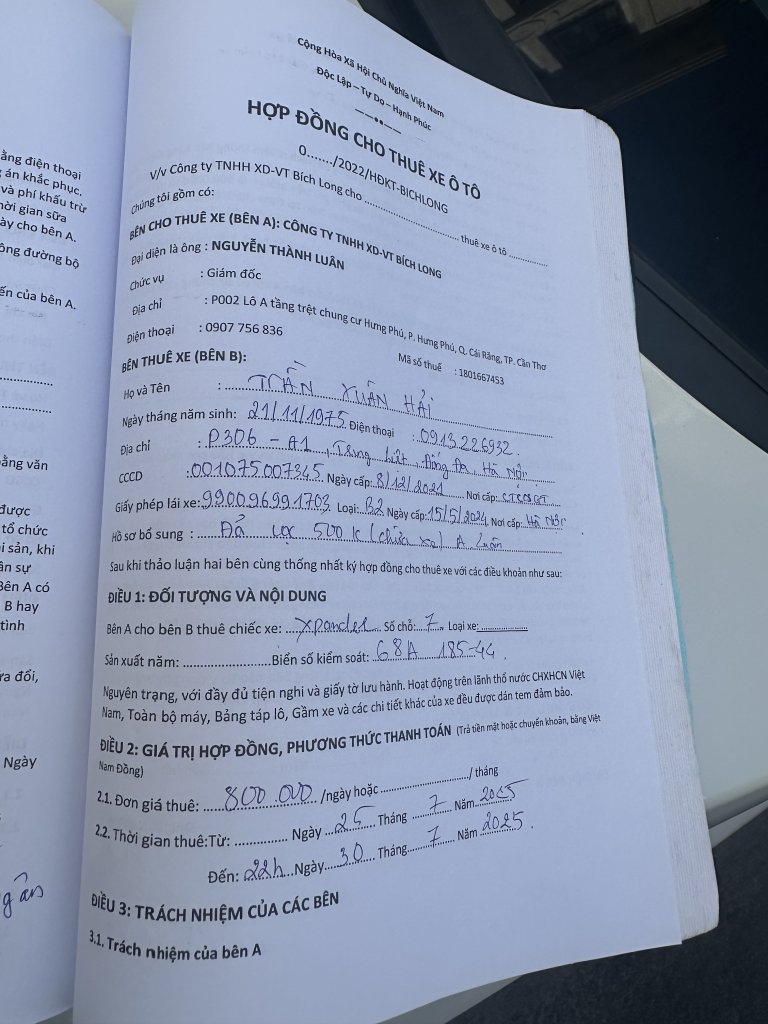 ằng điện thoại
án khắc phục.
và phí khấu trừ
hời gian sữa
ày cho bên A.
ông đường bộ
ến của bên A.
ằng văn
được
tổ chức
i sản, khi
ân sự
Bên A có
B hay
tình
ửa đổi,
Ngày
gân
Cộng Hòa Xã Hội Chủ Nghĩa Việt Nam
Độc Lập – Tự Do – Hạnh Phúc
HỢP ĐỒNG CHO THUÊ XE Ô TÔ
0....../2022/HĐKT-BICHLONG
V/v Công ty TNHH XD-VT Bích Long cho ........................ thuê xe ô tô ............
Chúng tôi gồm có:
BÊN CHO THUÊ XE (BÊN A): CÔNG TY TNHH XD-VT BÍCH LONG
Đại diện là ông : NGUYỄN THÀNH LUÂN
Chức vụ : Giám đốc
Địa chỉ : P002 Lô A tầng trệt chung cư Hưng Phú, P. Hưng Phú, Q. Cái Răng, TP. Cần Thơ
Điện thoại : 0907 756 836 Mã số thuế : 1801667453
BÊN THUÊ XE (BÊN B):
Họ và Tên : TRẦN XUÂN HẢI
Ngày tháng năm sinh: 21/11/1975 Điện thoại : 0913.226932
Địa chỉ : P306 - A1, Trung Liệt, Đống Đa, Hà Nội
CCCD : 001075007345 Ngày cấp: 8/12/2021 Nơi cấp:
Giấy phép lái xe: 990096991703 Loại: B2 Ngày cấp: 15/5/2024 Nơi cấp: Hà Nội
Hồ sơ bổ sung : Đả cọc 500k (chừa xe) A Luân
Sau khi thảo luận hai bên cùng thống nhất ký hợp đồng cho thuê xe với các điều khoản như sau:
ĐIỀU 1: ĐỐI TƯỢNG VÀ NỘI DUNG
Bên A cho bên B thuê chiếc xe: Xpander Số chỗ: 7 Loại xe:............
Sản xuất năm: ........................Biển số kiểm soát: 68A 185-44
Nguyên trạng, với đầy đủ tiện nghi và giấy tờ lưu hành. Hoạt động trên lãnh thổ nước CHXHCN Việt
Nam, Toàn bộ máy, Bảng táp lô, Gầm xe và các chi tiết khác của xe đều được dán tem đảm bảo.
ĐIỀU 2: GIÁ TRỊ HỢP ĐỒNG, PHƯƠNG THỨC THANH TOÁN (Trả tiền mặt hoặc chuyển khoản, bằng Việt
Nam Đồng)
2.1. Đơn giá thuê: 800.000 /ngày hoặc ......................../ tháng
2.2. Thời gian thuê:Từ: .............. Ngày 25 Tháng 7 Năm 2025
Đến: 22h Ngày 30 Tháng 7 Năm 2025.
ĐIỀU 3: TRÁCH NHIỆM CỦA CÁC BÊN
3.1. Trách nhiệm của bên A